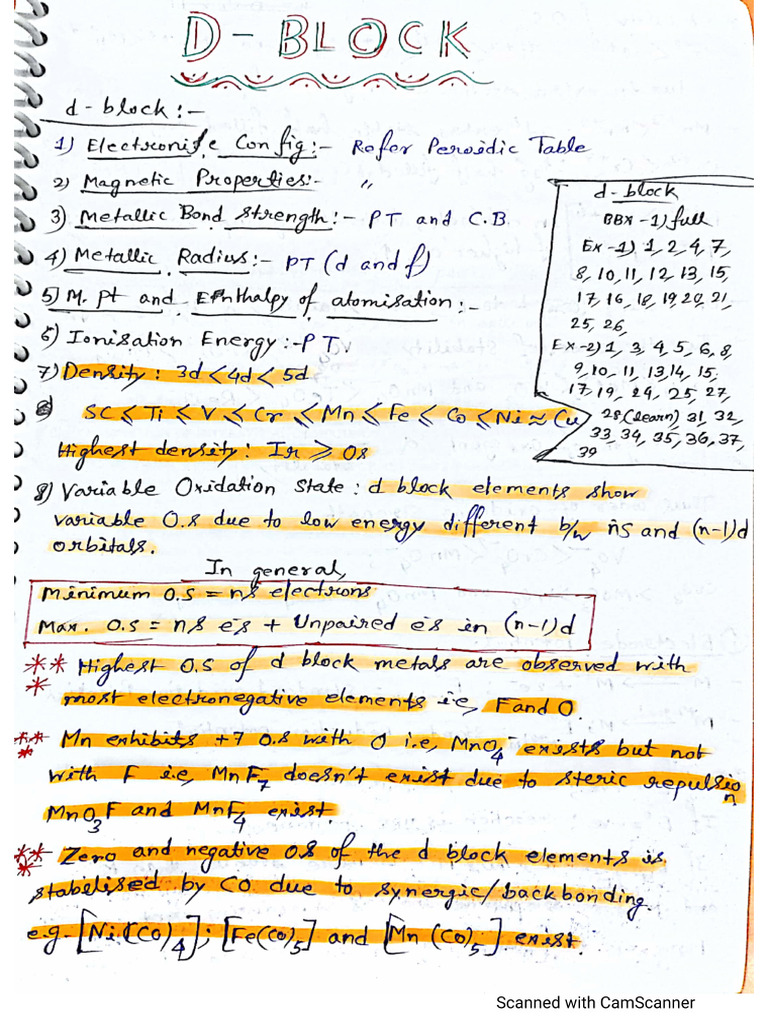 D-BLOCK
d-block:-
1) Electronic Config:- Refer Peroidic Table
2) Magnetic Properties:- "
3) Metallic Bond Strength:- PT and C.B
4) Metallic Radius:- PT (d and f)
5) M. pt and Enthalpy of atomisation:-
6) Ionisation Energy:- PT
7) Density: 3d < 4d < 5d
SC < Ti < V < Cr < Mn < Fe < Co < Ni ≈ Cu
Highest density: Ir ≥ Os
d-block
BBX-1) full
Ex-1) 1, 2, 4, 7,
8, 10, 11, 12, 13, 15
17, 16, 18, 19, 20, 21,
25, 26,
Ex-2) 1, 3, 4, 5, 6, 8,
9, 10, 11, 13, 14, 15,
17, 19, 24, 25, 27,
28 (learn) 31, 32,
33, 34, 35, 36, 37,
39
8) Variable Oxidation State: d block elements show
variable O.S due to low energy different b/w ns and (n-1)d
orbitals.
In general,
Minimum O.S = ns electrons
Max. O.S = ns e's + Unpaired e's in (n-1)d
*** Highest O.S of d block metals are observed with
most electronegative elements i.e, F and O.
*** Mn exhibits +7 O.S with O i.e, MnO4- exists but not
with F i.e, MnF7 doesn't exist due to steric repulsion
MnO3F and MnF4 exist.
*** Zero and negative OS of the d block elements is
stabelised by CO due to synergic/backbonding.
e.g- [Ni(CO)4]; [Fe(CO)5] and [Mn(CO)5] exist.
Scanned with CamScanner